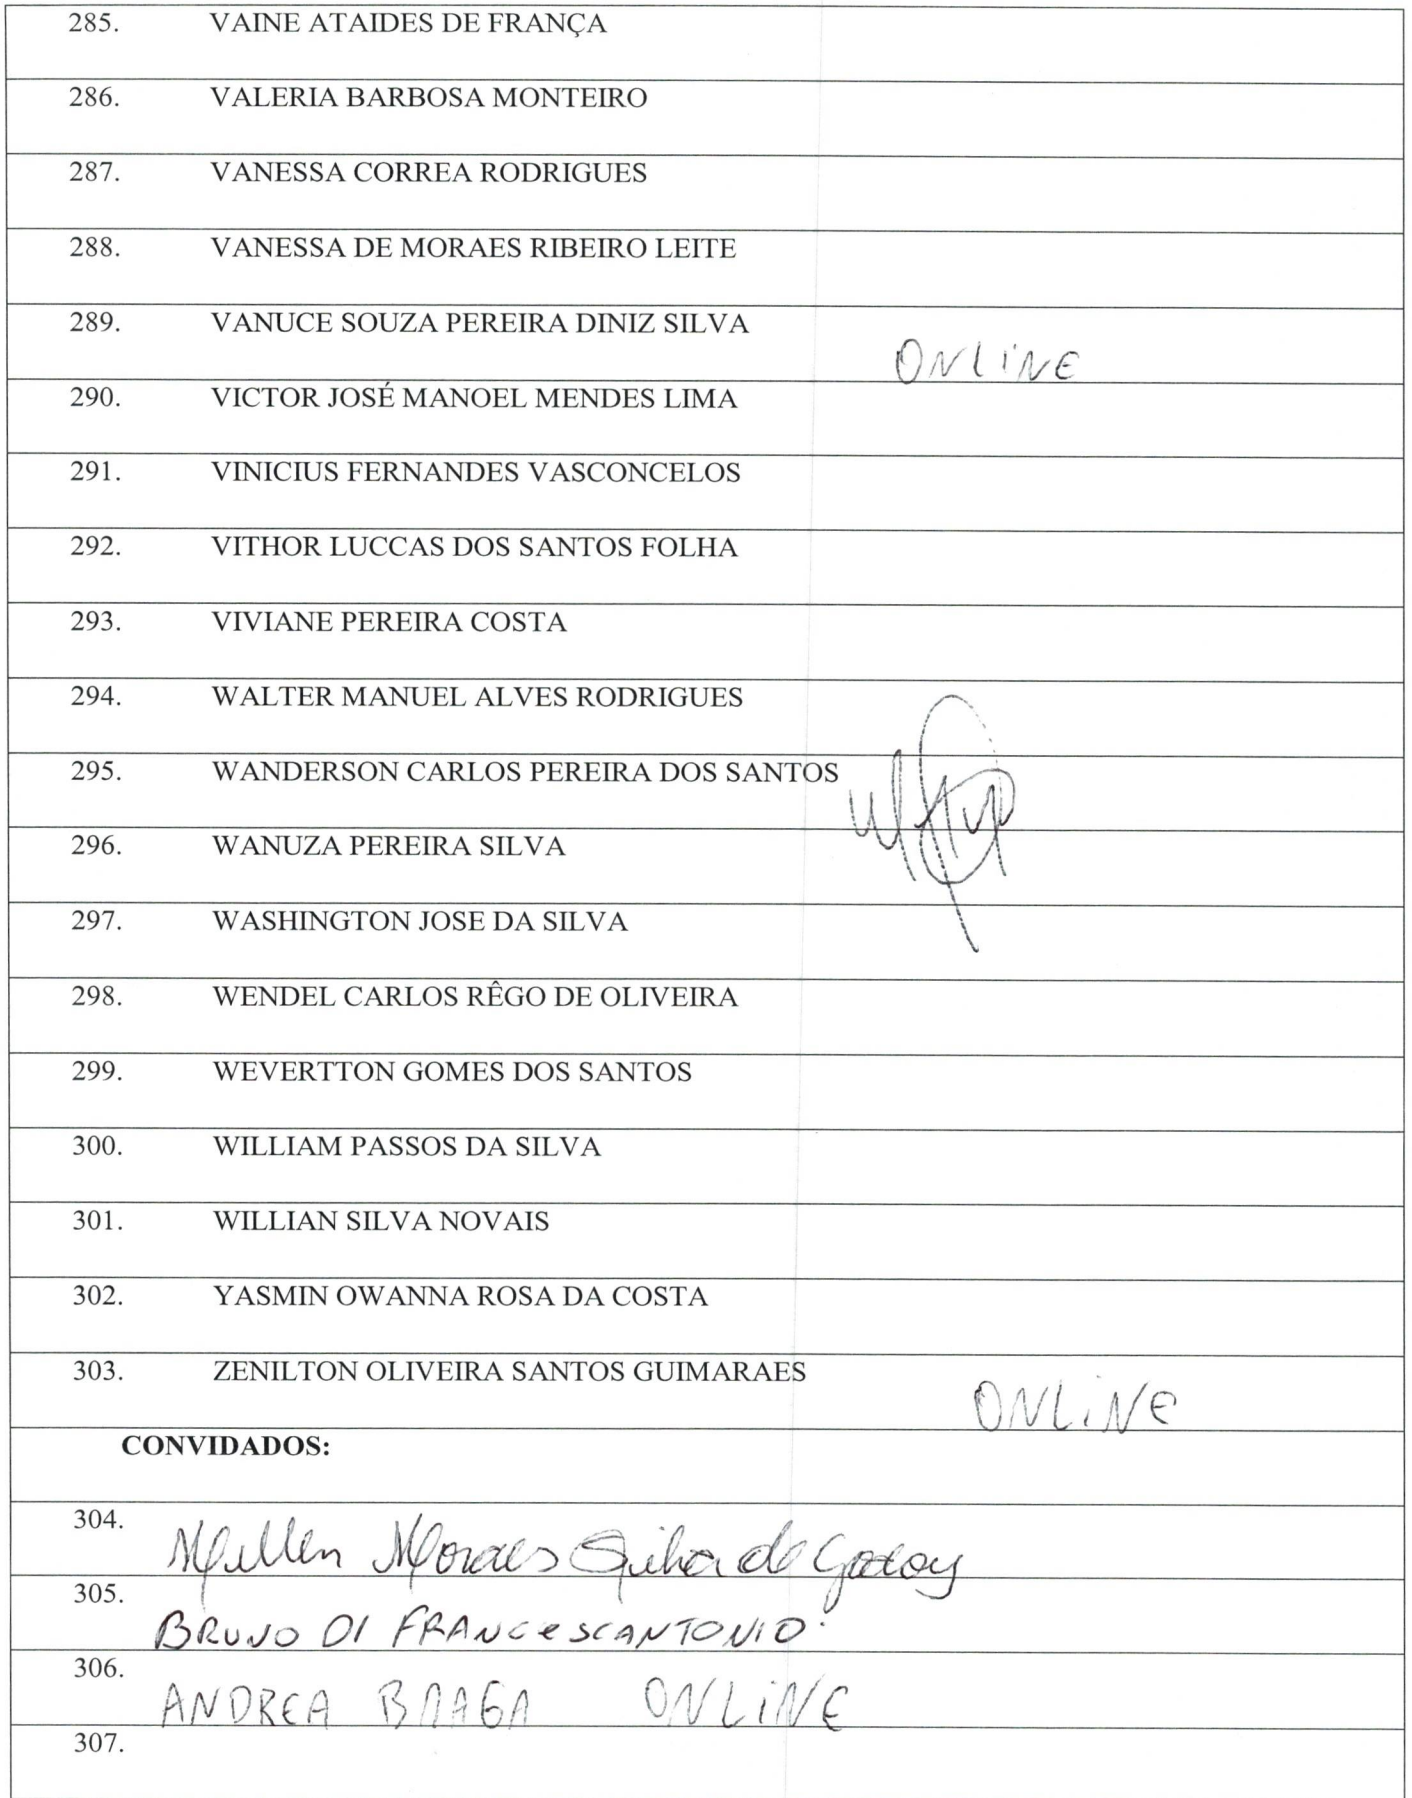 285. VAINE ATAIDES DE FRANÇA
286. VALERIA BARBOSA MONTEIRO
287. VANESSA CORREA RODRIGUES
288. VANESSA DE MORAES RIBEIRO LEITE
289. VANUCE SOUZA PEREIRA DINIZ SILVA ONLINE
290. VICTOR JOSÉ MANOEL MENDES LIMA
291. VINICIUS FERNANDES VASCONCELOS
292. VITHOR LUCCAS DOS SANTOS FOLHA
293. VIVIANE PEREIRA COSTA
294. WALTER MANUEL ALVES RODRIGUES
295. WANDERSON CARLOS PEREIRA DOS SANTOS
296. WANUZA PEREIRA SILVA
297. WASHINGTON JOSE DA SILVA
298. WENDEL CARLOS RÊGO DE OLIVEIRA
299. WEVERTTON GOMES DOS SANTOS
300. WILLIAM PASSOS DA SILVA
301. WILLIAN SILVA NOVAIS
302. YASMIN OWANNA ROSA DA COSTA
303. ZENILTON OLIVEIRA SANTOS GUIMARAES ONLINE
CONVIDADOS:
304. Moraes de Godoy
305. BRUNO DI FRANCESCANTONIO.
306. ANDREA BRAGA ONLINE
307.